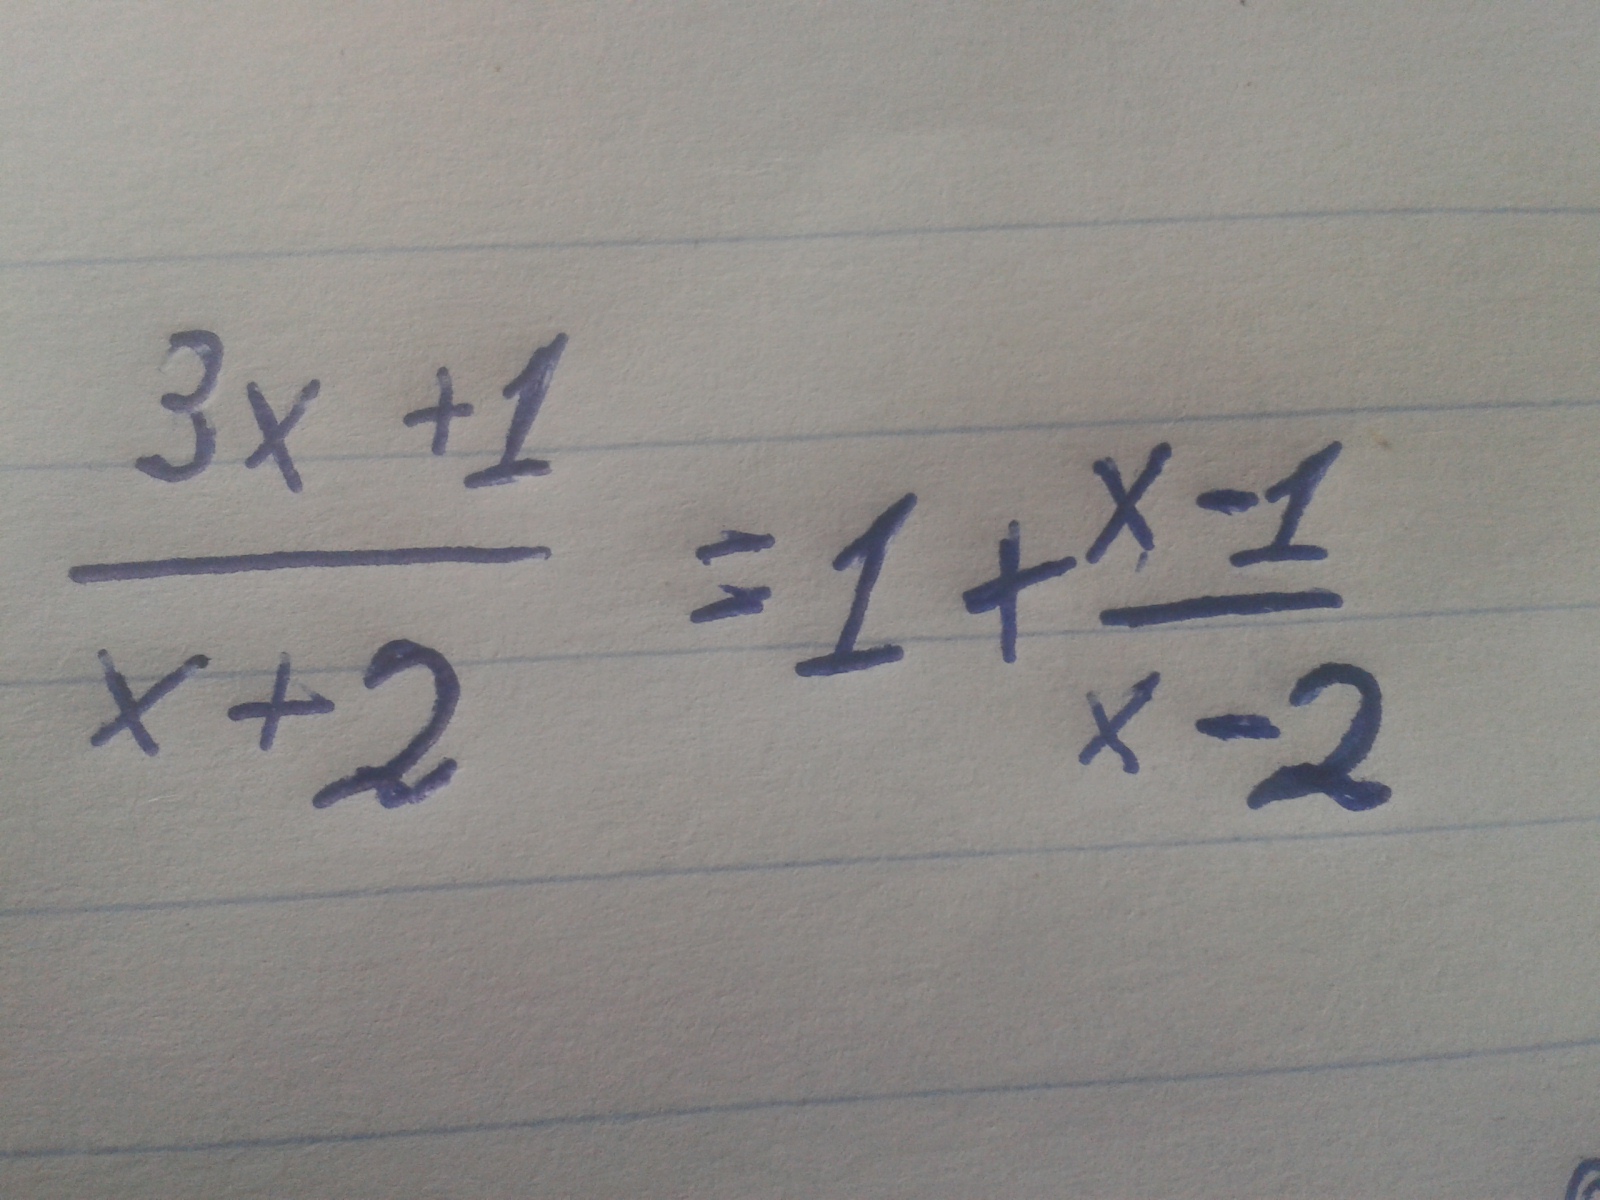 3x +1
x+2
= 1 +
x -1
x -2